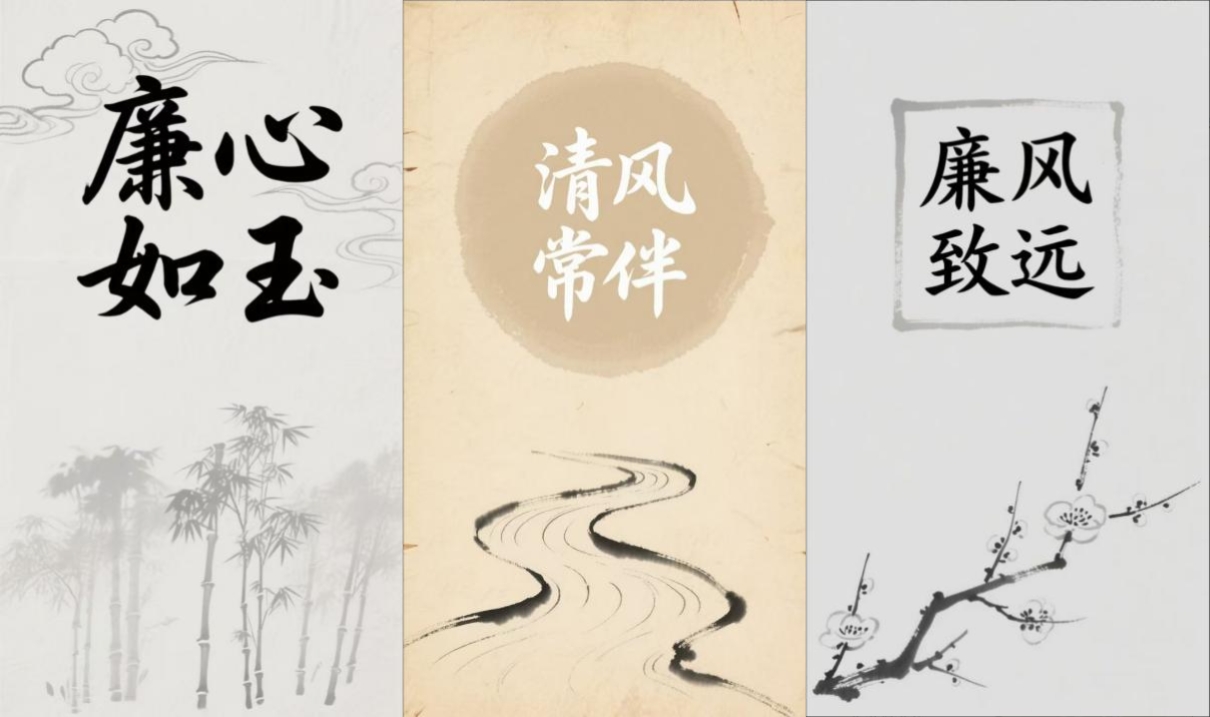 廉心
如玉
清风
常伴
廉风
致远